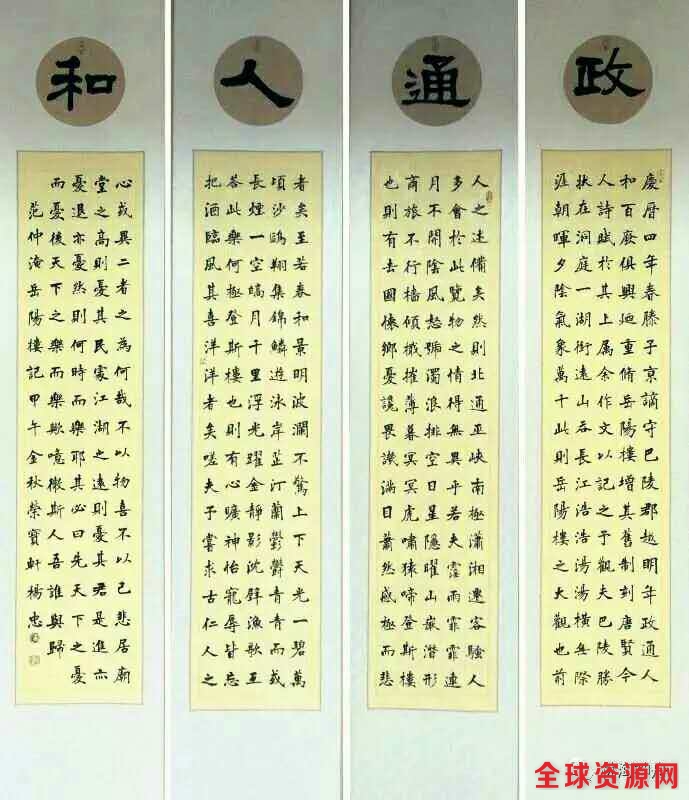 政
慶曆四年春滕子京謫守巴陵郡越明年政通人
和百廢俱興廼重脩岳陽樓增其舊制刻唐賢今
人詩賦於其上属余作文以記之予觀夫巴陵勝
狀在洞庭一湖銜遠山吞長江浩浩湯湯橫無際
涯朝暉夕陰氣象萬千此則岳陽樓之大觀也前
通
人之述備矣然則北通巫峽南極瀟湘遷客騷人
多會於此覽物之情得無異乎若夫霪雨霏霏連
月不開陰風怒號濁浪排空日星隱曜山嶽潛形
商旅不行檣傾檝摧薄暮冥冥虎嘯猿啼登斯樓
也則有去國懷鄉憂讒畏譏滿目蕭然感極而悲
人
者矣至若春和景明波瀾不驚上下天光一碧萬
頃沙鷗翔集錦鱗遊泳岸芷汀蘭鬱鬱青青而或
長煙一空皓月千里浮光躍金靜影沈璧漁歌互
答此樂何極登斯樓也則有心曠神怡寵辱皆忘
把酒臨風其喜洋洋者矣嗟夫予嘗求古仁人之
和
心或異二者之為何哉不以物喜不以己悲居廟
堂之高則憂其民處江湖之遠則憂其君是進亦
憂退亦憂然則何時而樂耶其必曰先天下之憂
而憂後天下之樂而樂歟噫微斯人吾誰與歸
范仲淹岳陽樓記甲午金秋榮寶軒楊忠
全球资源网